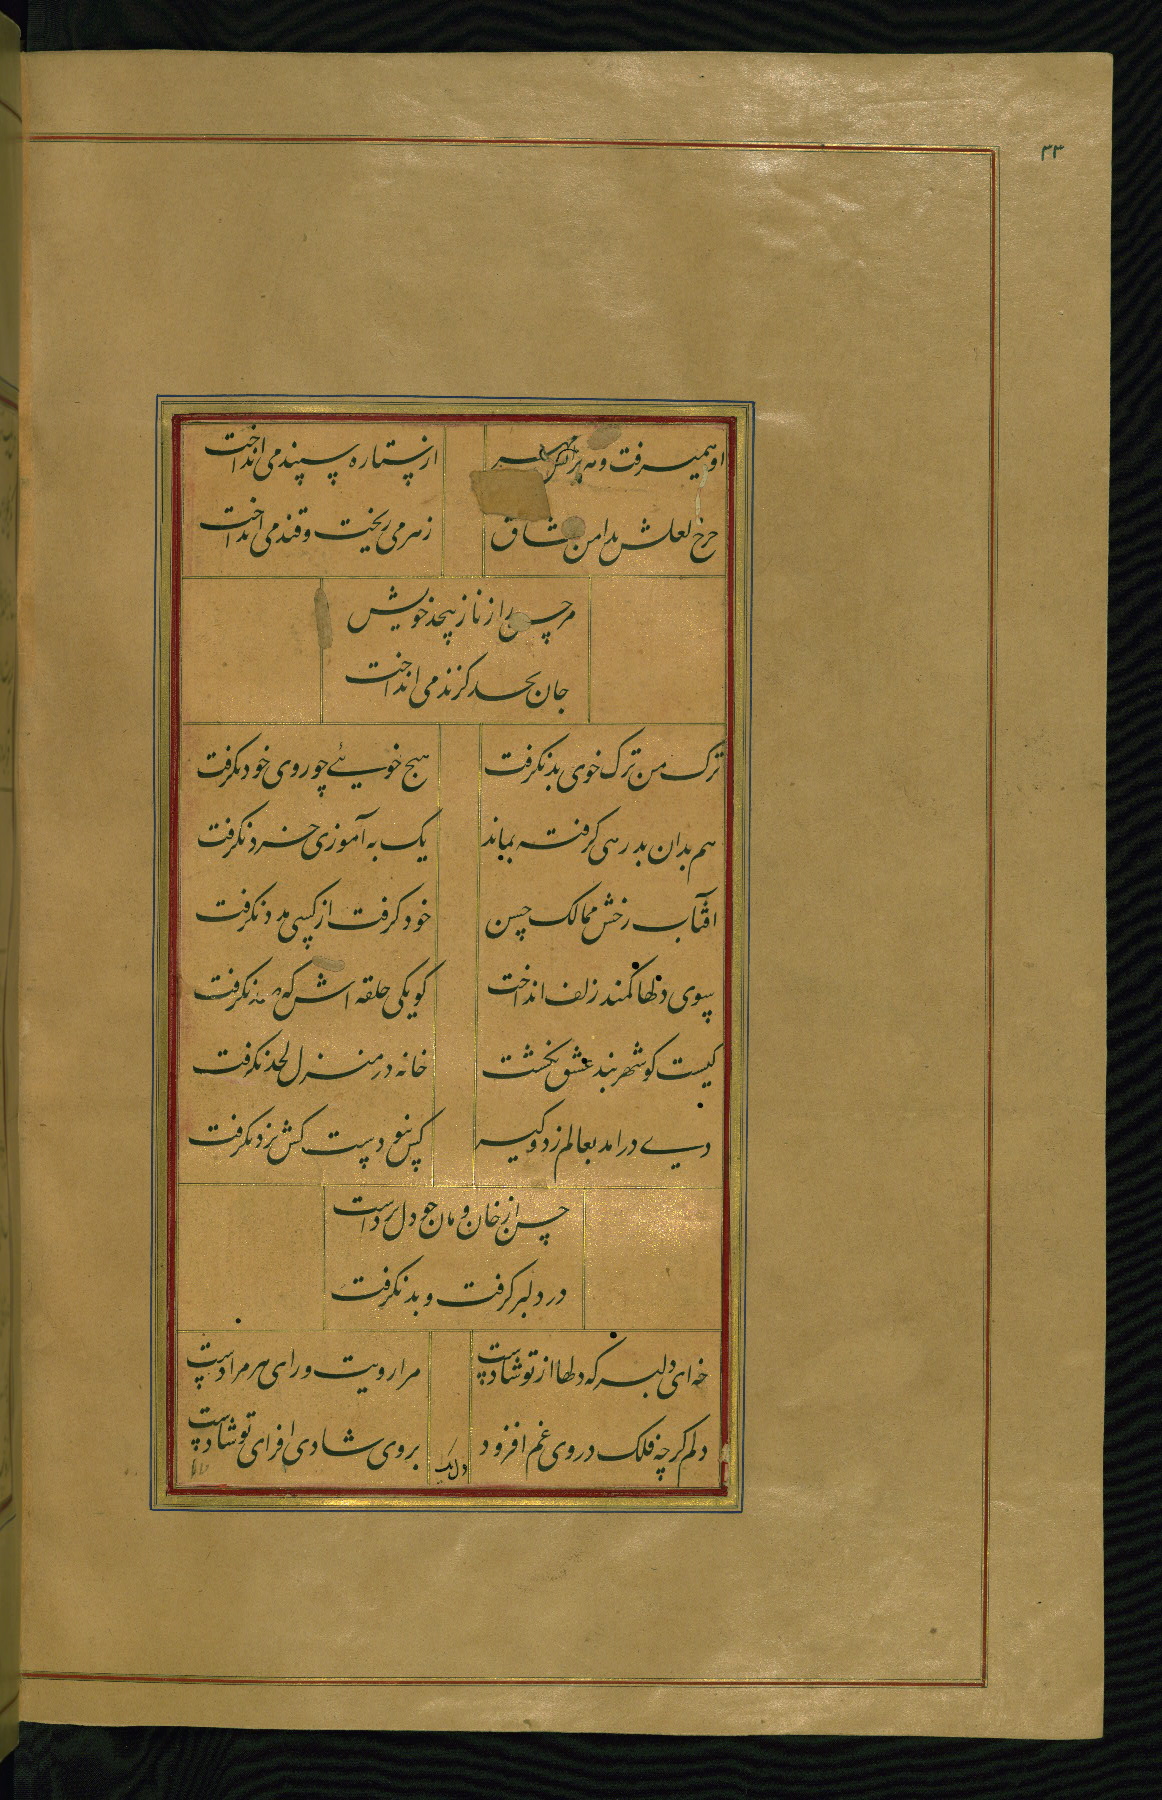 ۳۳
او همیرفت و مه بر آتش مهر
از ستاره سپند می انداخت
چرخ لعلش بدامن عشاق
زهر می ریخت و قند می انداخت
مر حسن را ز ناز پیچد خویش
جان بحسد کزند می انداخت
ترک من ترک خوی بد نکرفت
هیچ خویی چو روی خود نکرفت
هم بدان بد رهی کرفته بماند
یک به آموزی خرد نکرفت
افتاب رخش ممالک حسن
خود کرفت از کسی مدد نکرفت
سوی دلها کمند زلف انداخت
کو یکی حلقه اش که صد نکرفت
کیست کو شهر بند عشق نکشت
خانه در منزل لحد نکرفت
دی درامد بعالم زد و کیر
کس بنو دست کش نزد نکرفت
حسن از خان و مان چو دل برداشت
در دلبر کرفت و بد نکرفت
خه ای دلبر که دلها از تو شادست
مرا رویت ورای هر مرادست
دلم کرچه فلک در وی غم افزود
بروی شادی افزای تو شادست
دل یک